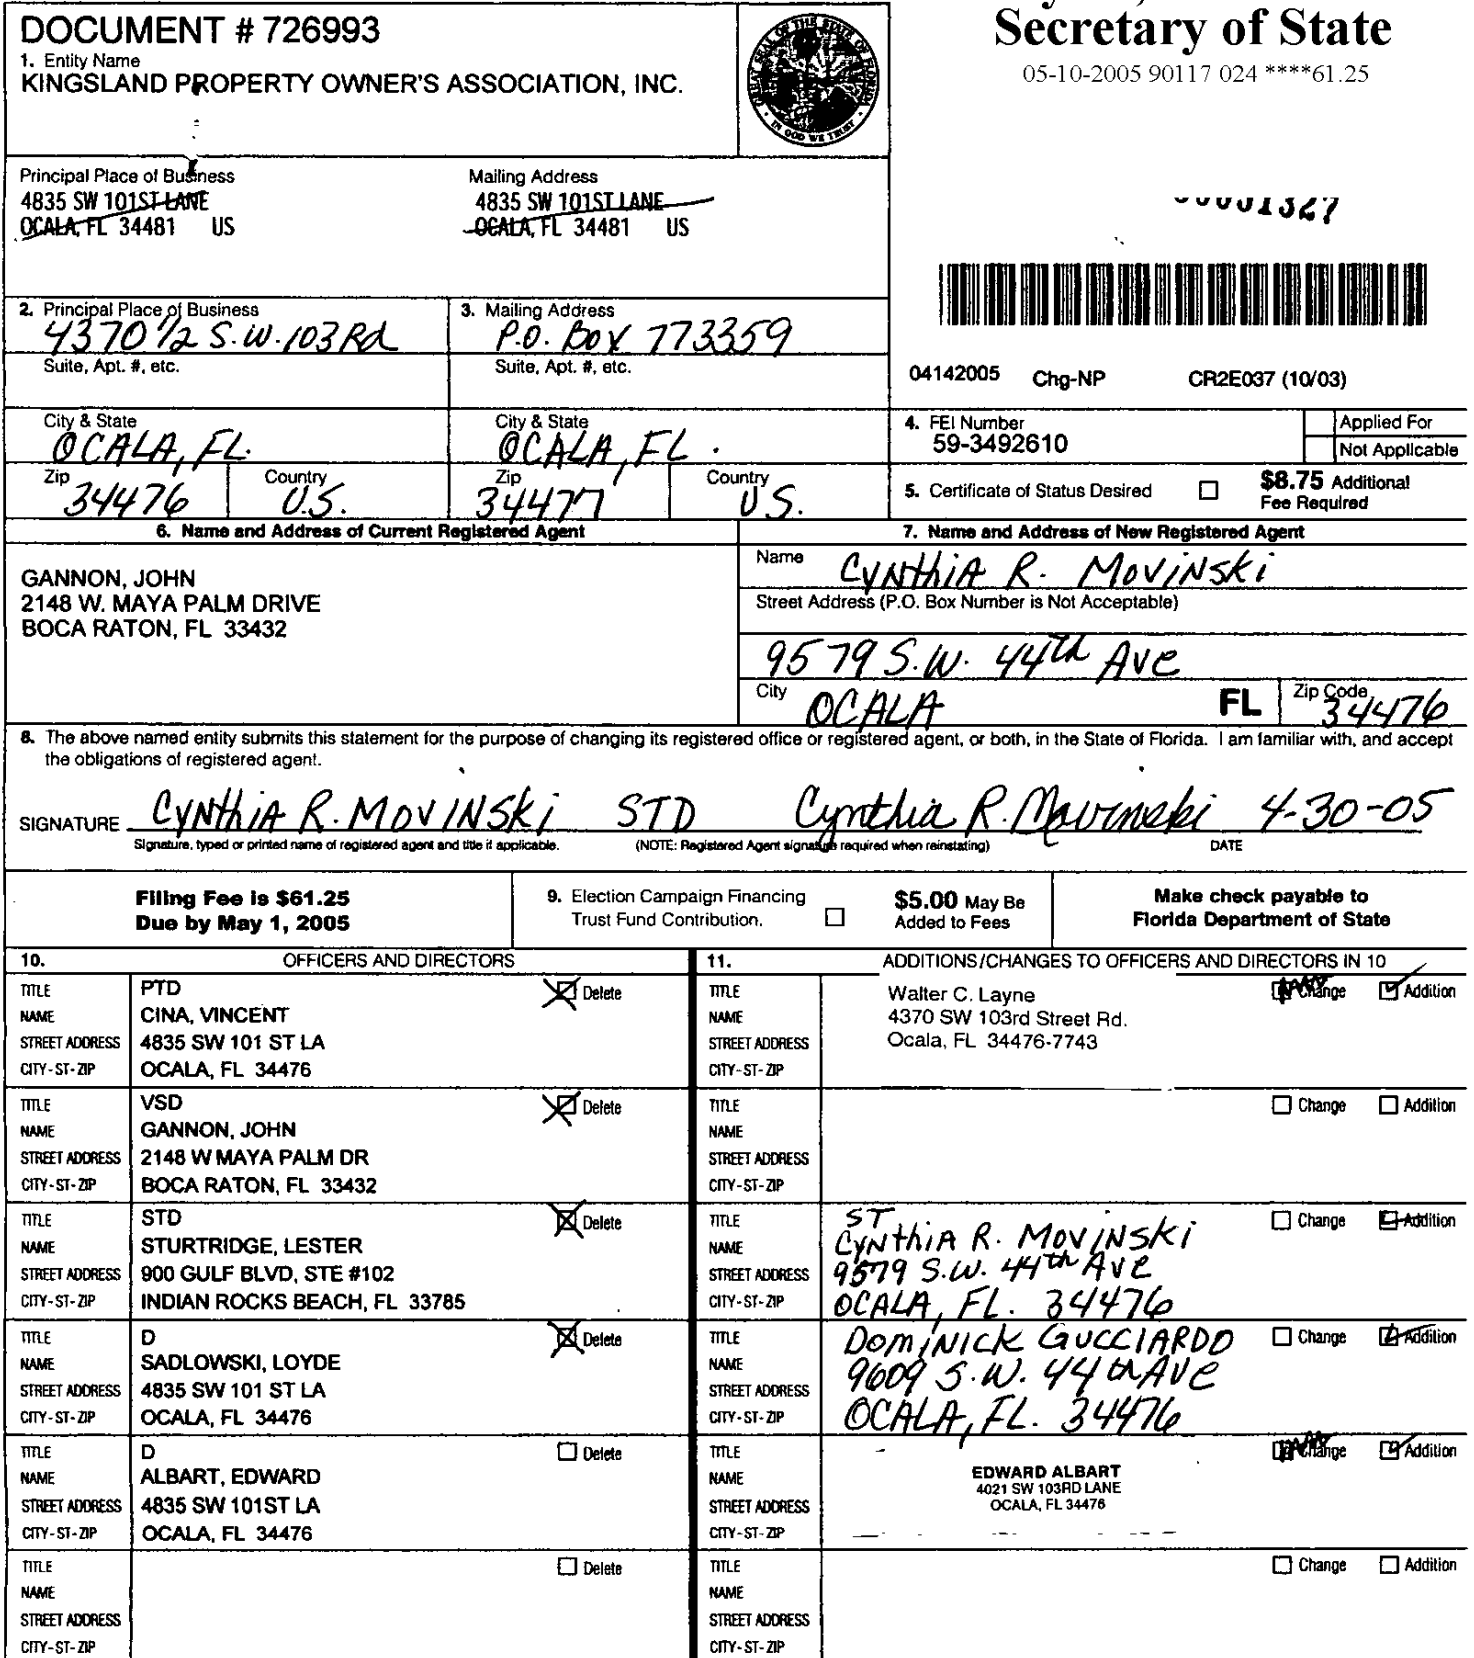 Secretary of State
05-10-2005 90117 024 ****61.25
DOCUMENT # 726993
1. Entity Name
KINGSLAND PROPERTY OWNER'S ASSOCIATION, INC.
GREAT SEAL OF THE STATE OF FLORIDA
IN GOD WE TRUST
Principal Place of Business
4835 SW 101ST LANE
OCALA, FL 34481 US
Mailing Address
4835 SW 101ST LANE
OCALA, FL 34481 US
2. Principal Place of Business
4370 1/2 S.W. 103 Rd
Suite, Apt. #, etc.
City & State
OCALA, FL.
Zip
34476
Country
U.S.
3. Mailing Address
P.O. Box 773359
Suite, Apt. #, etc.
City & State
OCALA, FL.
Zip
34477
Country
US.
04142005 Chg-NP CR2E037 (10/03)
4. FEI Number
59-3492610
Applied For
Not Applicable
5. Certificate of Status Desired
$8.75 Additional
Fee Required
6. Name and Address of Current Registered Agent
GANNON, JOHN
2148 W. MAYA PALM DRIVE
BOCA RATON, FL 33432
7. Name and Address of New Registered Agent
Name
CYNthiA R. MOViNSki
Street Address (P.O. Box Number is Not Acceptable)
9579 S.W. 44th AVE
City
OCALA
FL
Zip Code
34476
8. The above named entity submits this statement for the purpose of changing its registered office or registered agent, or both, in the State of Florida. I am familiar with, and accept
the obligations of registered agent.
SIGNATURE CYNthiA R. MOVINSki STD Cynthia R. Movinski 4-30-05
Signature, typed or printed name of registered agent and title if applicable. (NOTE: Registered Agent signature required when reinstating) DATE
Filing Fee is $61.25
Due by May 1, 2005
9. Election Campaign Financing
Trust Fund Contribution.
$5.00 May Be
Added to Fees
Make check payable to
Florida Department of State
10. OFFICERS AND DIRECTORS
TITLE PTD Delete
NAME CINA, VINCENT
STREET ADDRESS 4835 SW 101 ST LA
CITY-ST-ZIP OCALA, FL 34476
TITLE VSD Delete
NAME GANNON, JOHN
STREET ADDRESS 2148 W MAYA PALM DR
CITY-ST-ZIP BOCA RATON, FL 33432
TITLE STD Delete
NAME STURTRIDGE, LESTER
STREET ADDRESS 900 GULF BLVD, STE #102
CITY-ST-ZIP INDIAN ROCKS BEACH, FL 33785
TITLE D Delete
NAME SADLOWSKI, LOYDE
STREET ADDRESS 4835 SW 101 ST LA
CITY-ST-ZIP OCALA, FL 34476
TITLE D Delete
NAME ALBART, EDWARD
STREET ADDRESS 4835 SW 101ST LA
CITY-ST-ZIP OCALA, FL 34476
TITLE Delete
NAME
STREET ADDRESS
CITY-ST-ZIP
11. ADDITIONS/CHANGES TO OFFICERS AND DIRECTORS IN 10
TITLE Walter C. Layne Change Addition
NAME 4370 SW 103rd Street Rd.
STREET ADDRESS Ocala, FL 34476-7743
CITY-ST-ZIP
TITLE Change Addition
NAME
STREET ADDRESS
CITY-ST-ZIP
TITLE ST Change Addition
NAME CYNthiA R. MOVINSki
STREET ADDRESS 9579 S.W. 44th AVE
CITY-ST-ZIP OCALA, FL. 34476
TITLE DOMiNICK GUCCIARDO Change Addition
NAME 9609 S.W. 44th AVE
STREET ADDRESS OCALA, FL. 34476
CITY-ST-ZIP
TITLE Change Addition
NAME EDWARD ALBART
STREET ADDRESS 4021 SW 103RD LANE
OCALA, FL 34476
CITY-ST-ZIP
TITLE Change Addition
NAME
STREET ADDRESS
CITY-ST-ZIP